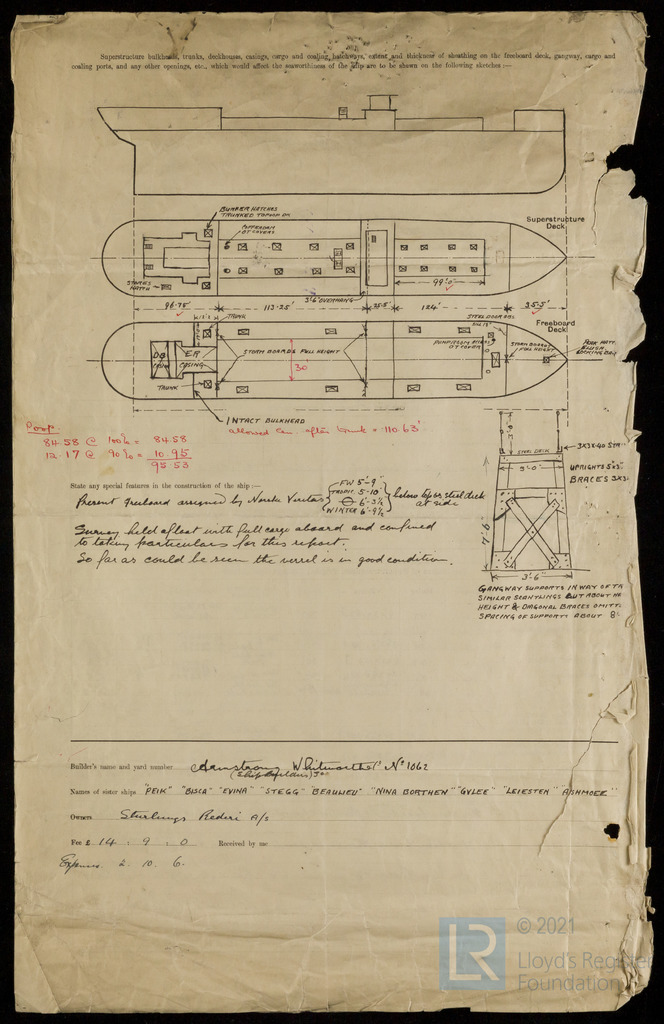 Superstructure bulkheads, trunks, deckhouses, casings, cargo and coaling hatchways, extent and thickness of sheathing on the freeboard deck, gangway, cargo and
coaling ports, and any other openings, etc., which would affect the seaworthiness of the ship are to be shown on the following sketches :—
BUNKER HATCHES
TRUNKED TO MAIN DK
PUMPROOM
OT COVERS
Superstructure
Deck
STORES
HATCH
3'-6" OVERHANG
99'-0"
96.75'
113.25'
25.5'
124'
35.5'
TRUNK
STEEL DOOR
Freeboard
Deck
DB
CASING
ER
CASING
STORM BOARDS FULL HEIGHT
30
PUMPROOM
OT COVER
STORM BOARDS
FULL HEIGHT
PEAK HATCH
FLUSH
LOCKING
TRUNK
INTACT BULKHEAD
allowed len. after trunk = 110.63'
Poop.
84.58 @ 100% = 84.58
12.17 @ 90% = 10.95
95.53
STEEL DECK
3X3X.40
9'-0"
UPRIGHTS 5X3"
BRACES 3X3
7'-6"
3'-6"
GANGWAY SUPPORTS IN WAY OF
SIMILAR SCANTLINGS BUT ABOUT
HEIGHT & DIAGONAL BRACES
SPACING OF SUPPORTS ABOUT 8'
State any special features in the construction of the ship :—
Present freeboard assigned by Norske Veritas
FW 5'-9"
TROPIC 5'-10"
6'-3¼
WINTER 6'-9½
below top of steel deck
at side
Survey held afloat with full cargo aboard and confined
to taking particulars for this report.
So far as could be seen the vessel is in good condition.
Builder's name and yard number Armstrong Whitworth & Co Nº 1062
(Shipbuilders) Ltd
Names of sister ships "PEIK" "BISCA" "EVINA" "STEGG" "BEAULIEU" "NINA BORTHEN" "GYLEE" "LEIESTEN" "ASHMOEE"
Owners Sturlungs Rederi A/s
Fee £ 14 : 9 : 0 Received by me
Expenses 2. 10. 6.
© 2021
LR
Lloyd's Register
Foundation